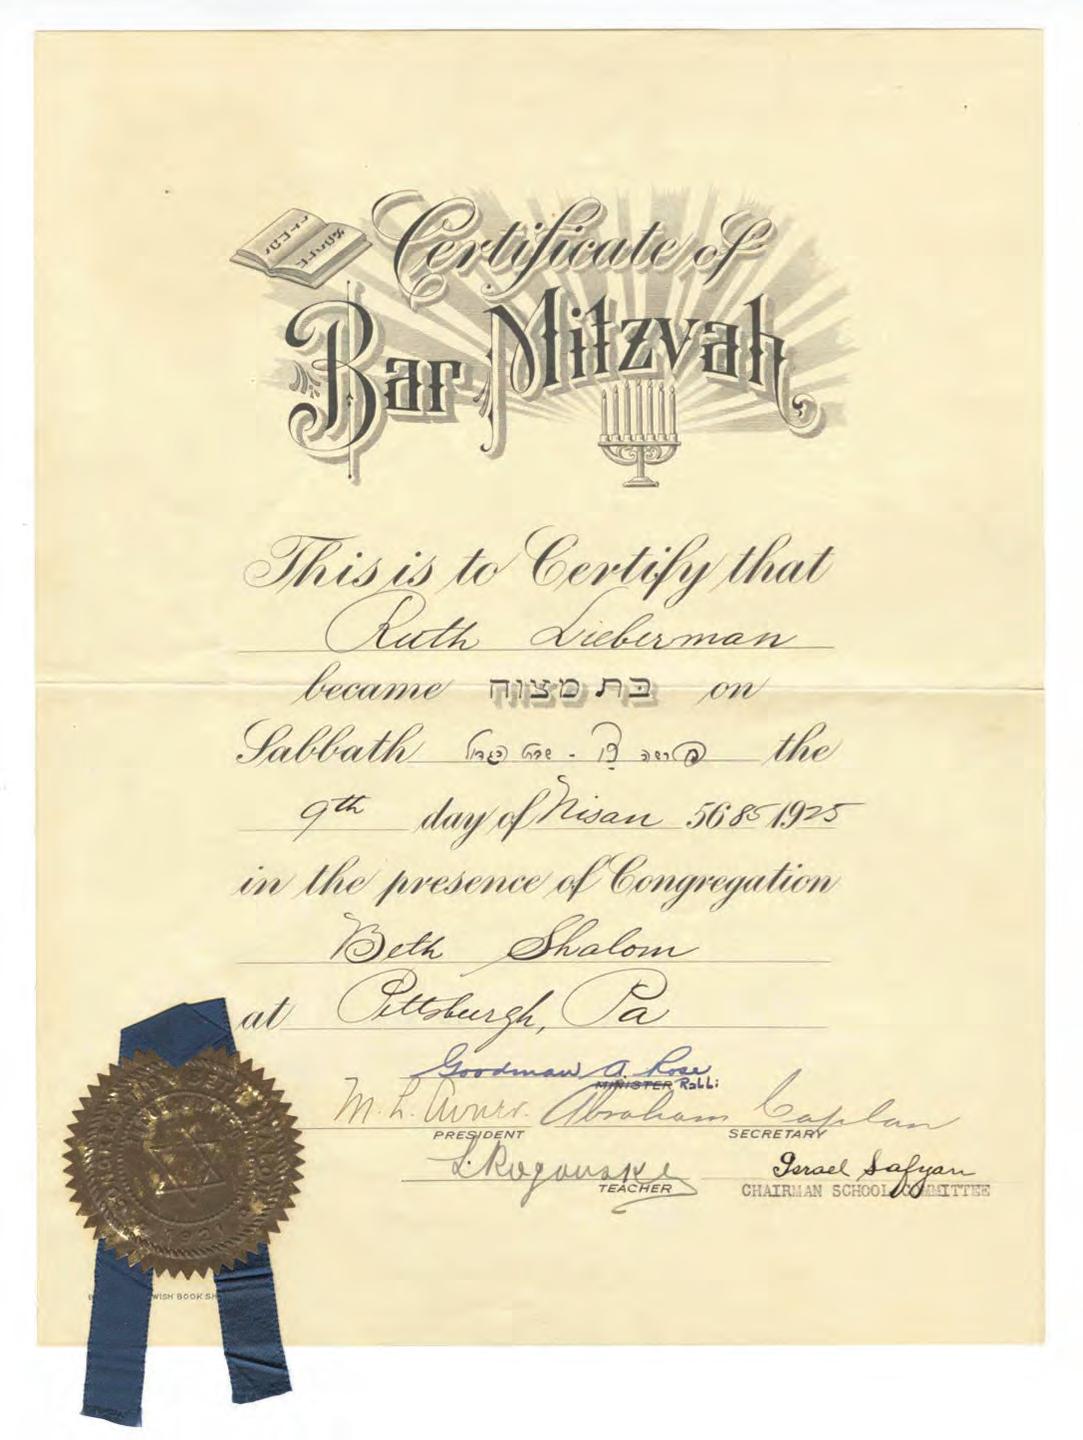 Certificate of
Bar Mitzvah
This is to Certify that
Ruth Lieberman
became בת מצוה on
Sabbath פרשה צו - שבת הגדול the
9th day of Nisan 5685 1925
in the presence of Congregation
Beth Shalom
at Pittsburgh, Pa
Goodman A. Rose
MINISTER Rabbi
Abraham Caplan
PRESIDENT SECRETARY
Israel Safyan
TEACHER CHAIRMAN SCHOOL COMMITTEE
BOOK